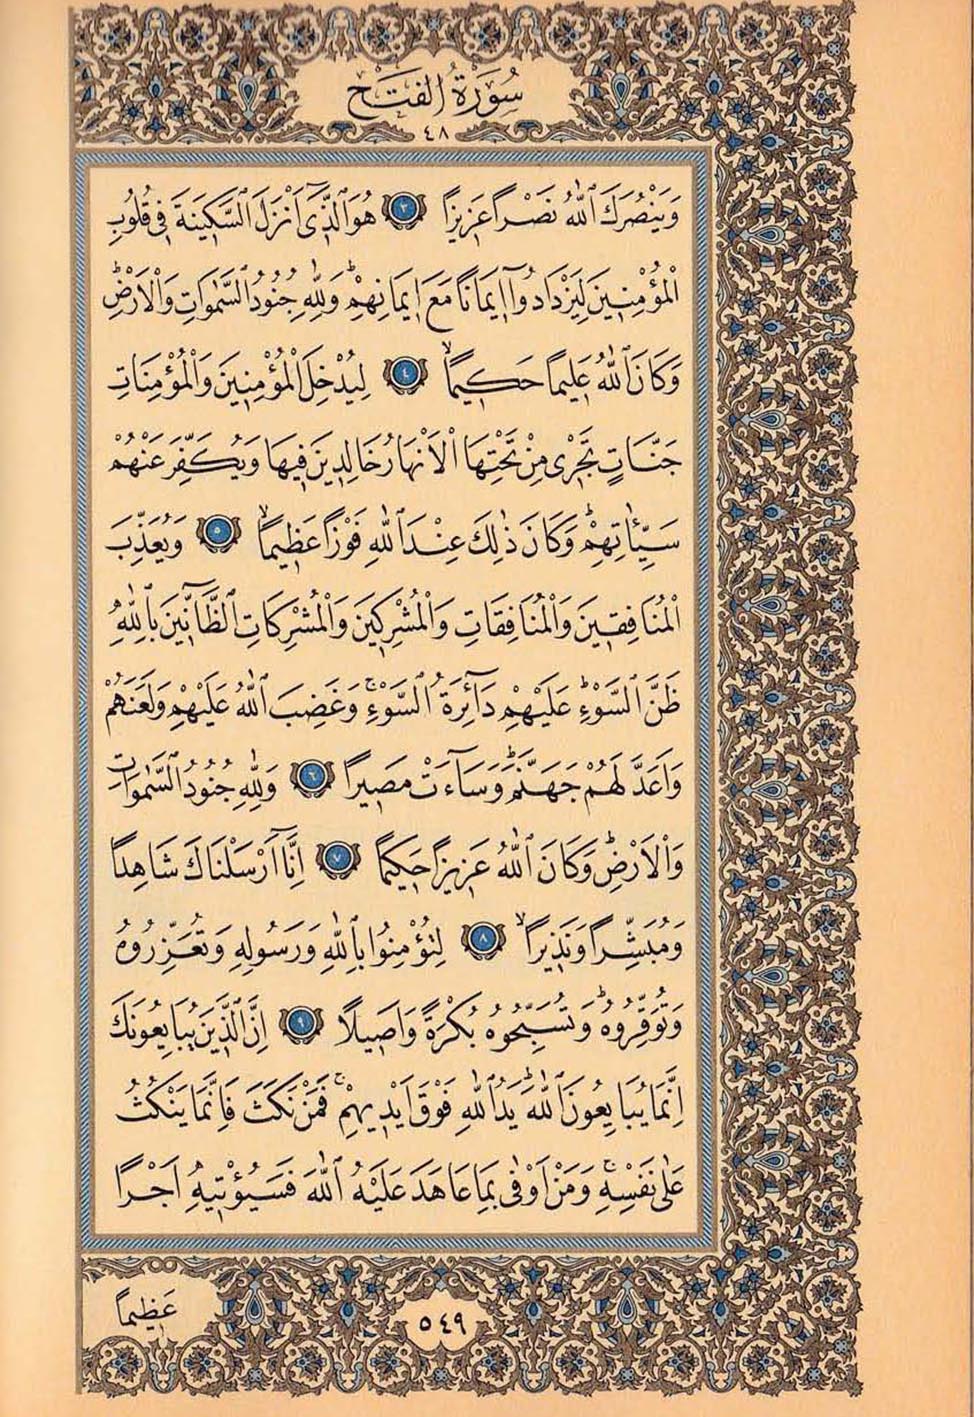 سُورَةُ الفَتْحِ
٤٨
وَيَنْصُرَكَ ٱللّٰهُ نَصْرًا عَزِيزًا ﴿٣﴾ هُوَ ٱلَّذٓى اَنْزَلَ ٱلسَّكِينَةَ فِى قُلُوبِ
ٱلْمُؤْمِنِينَ لِيَزْدَادُوٓا اِيمَانًا مَعَ اِيمَانِهِمْۜ وَلِلّٰهِ جُنُودُ ٱلسَّمٰوَاتِ وَٱلْاَرْضِۜ
وَكَانَ ٱللّٰهُ عَلِيمًا حَكِيمًاۙ ﴿٤﴾ لِيُدْخِلَ ٱلْمُؤْمِنِينَ وَٱلْمُؤْمِنَاتِ
جَنَّاتٍ تَجْرِى مِنْ تَحْتِهَا ٱلْاَنْهَارُ خَالِدِينَ فِيهَا وَيُكَفِّرَ عَنْهُمْ
سَيِّـَٔاتِهِمْۜ وَكَانَ ذٰلِكَ عِنْدَ ٱللّٰهِ فَوْزًا عَظِيمًاۙ ﴿٥﴾ وَيُعَذِّبَ
ٱلْمُنَافِقِينَ وَٱلْمُنَافِقَاتِ وَٱلْمُشْرِكِينَ وَٱلْمُشْرِكَاتِ ٱلظَّٓانِّينَ بِٱللّٰهِ
ظَنَّ ٱلسَّوْءِۜ عَلَيْهِمْ دَٓائِرَةُ ٱلسَّوْءِۚ وَغَضِبَ ٱللّٰهُ عَلَيْهِمْ وَلَعَنَهُمْ
وَاَعَدَّ لَهُمْ جَهَنَّمَۜ وَسَٓاءَتْ مَصِيرًا ﴿٦﴾ وَلِلّٰهِ جُنُودُ ٱلسَّمٰوَاتِ
وَٱلْاَرْضِۜ وَكَانَ ٱللّٰهُ عَزِيزًا حَكِيمًا ﴿٧﴾ اِنَّٓا اَرْسَلْنَاكَ شَاهِدًا
وَمُبَشِّرًا وَنَذِيرًاۙ ﴿٨﴾ لِتُؤْمِنُوا بِٱللّٰهِ وَرَسُولِهِ وَتُعَزِّرُوهُ
وَتُوَقِّرُوهُۜ وَتُسَبِّحُوهُ بُكْرَةً وَاَصِيلًا ﴿٩﴾ اِنَّ ٱلَّذِينَ يُبَايِعُونَكَ
اِنَّمَا يُبَايِعُونَ ٱللّٰهَۜ يَدُ ٱللّٰهِ فَوْقَ اَيْدِيهِمْۚ فَمَنْ نَكَثَ فَاِنَّمَا يَنْكُثُ
عَلٰى نَفْسِهِۚ وَمَنْ اَوْفٰى بِمَا عَاهَدَ عَلَيْهُ ٱللّٰهَ فَسَيُؤْتِيهِ اَجْرًا
عَظِيمًا
٥٤٩